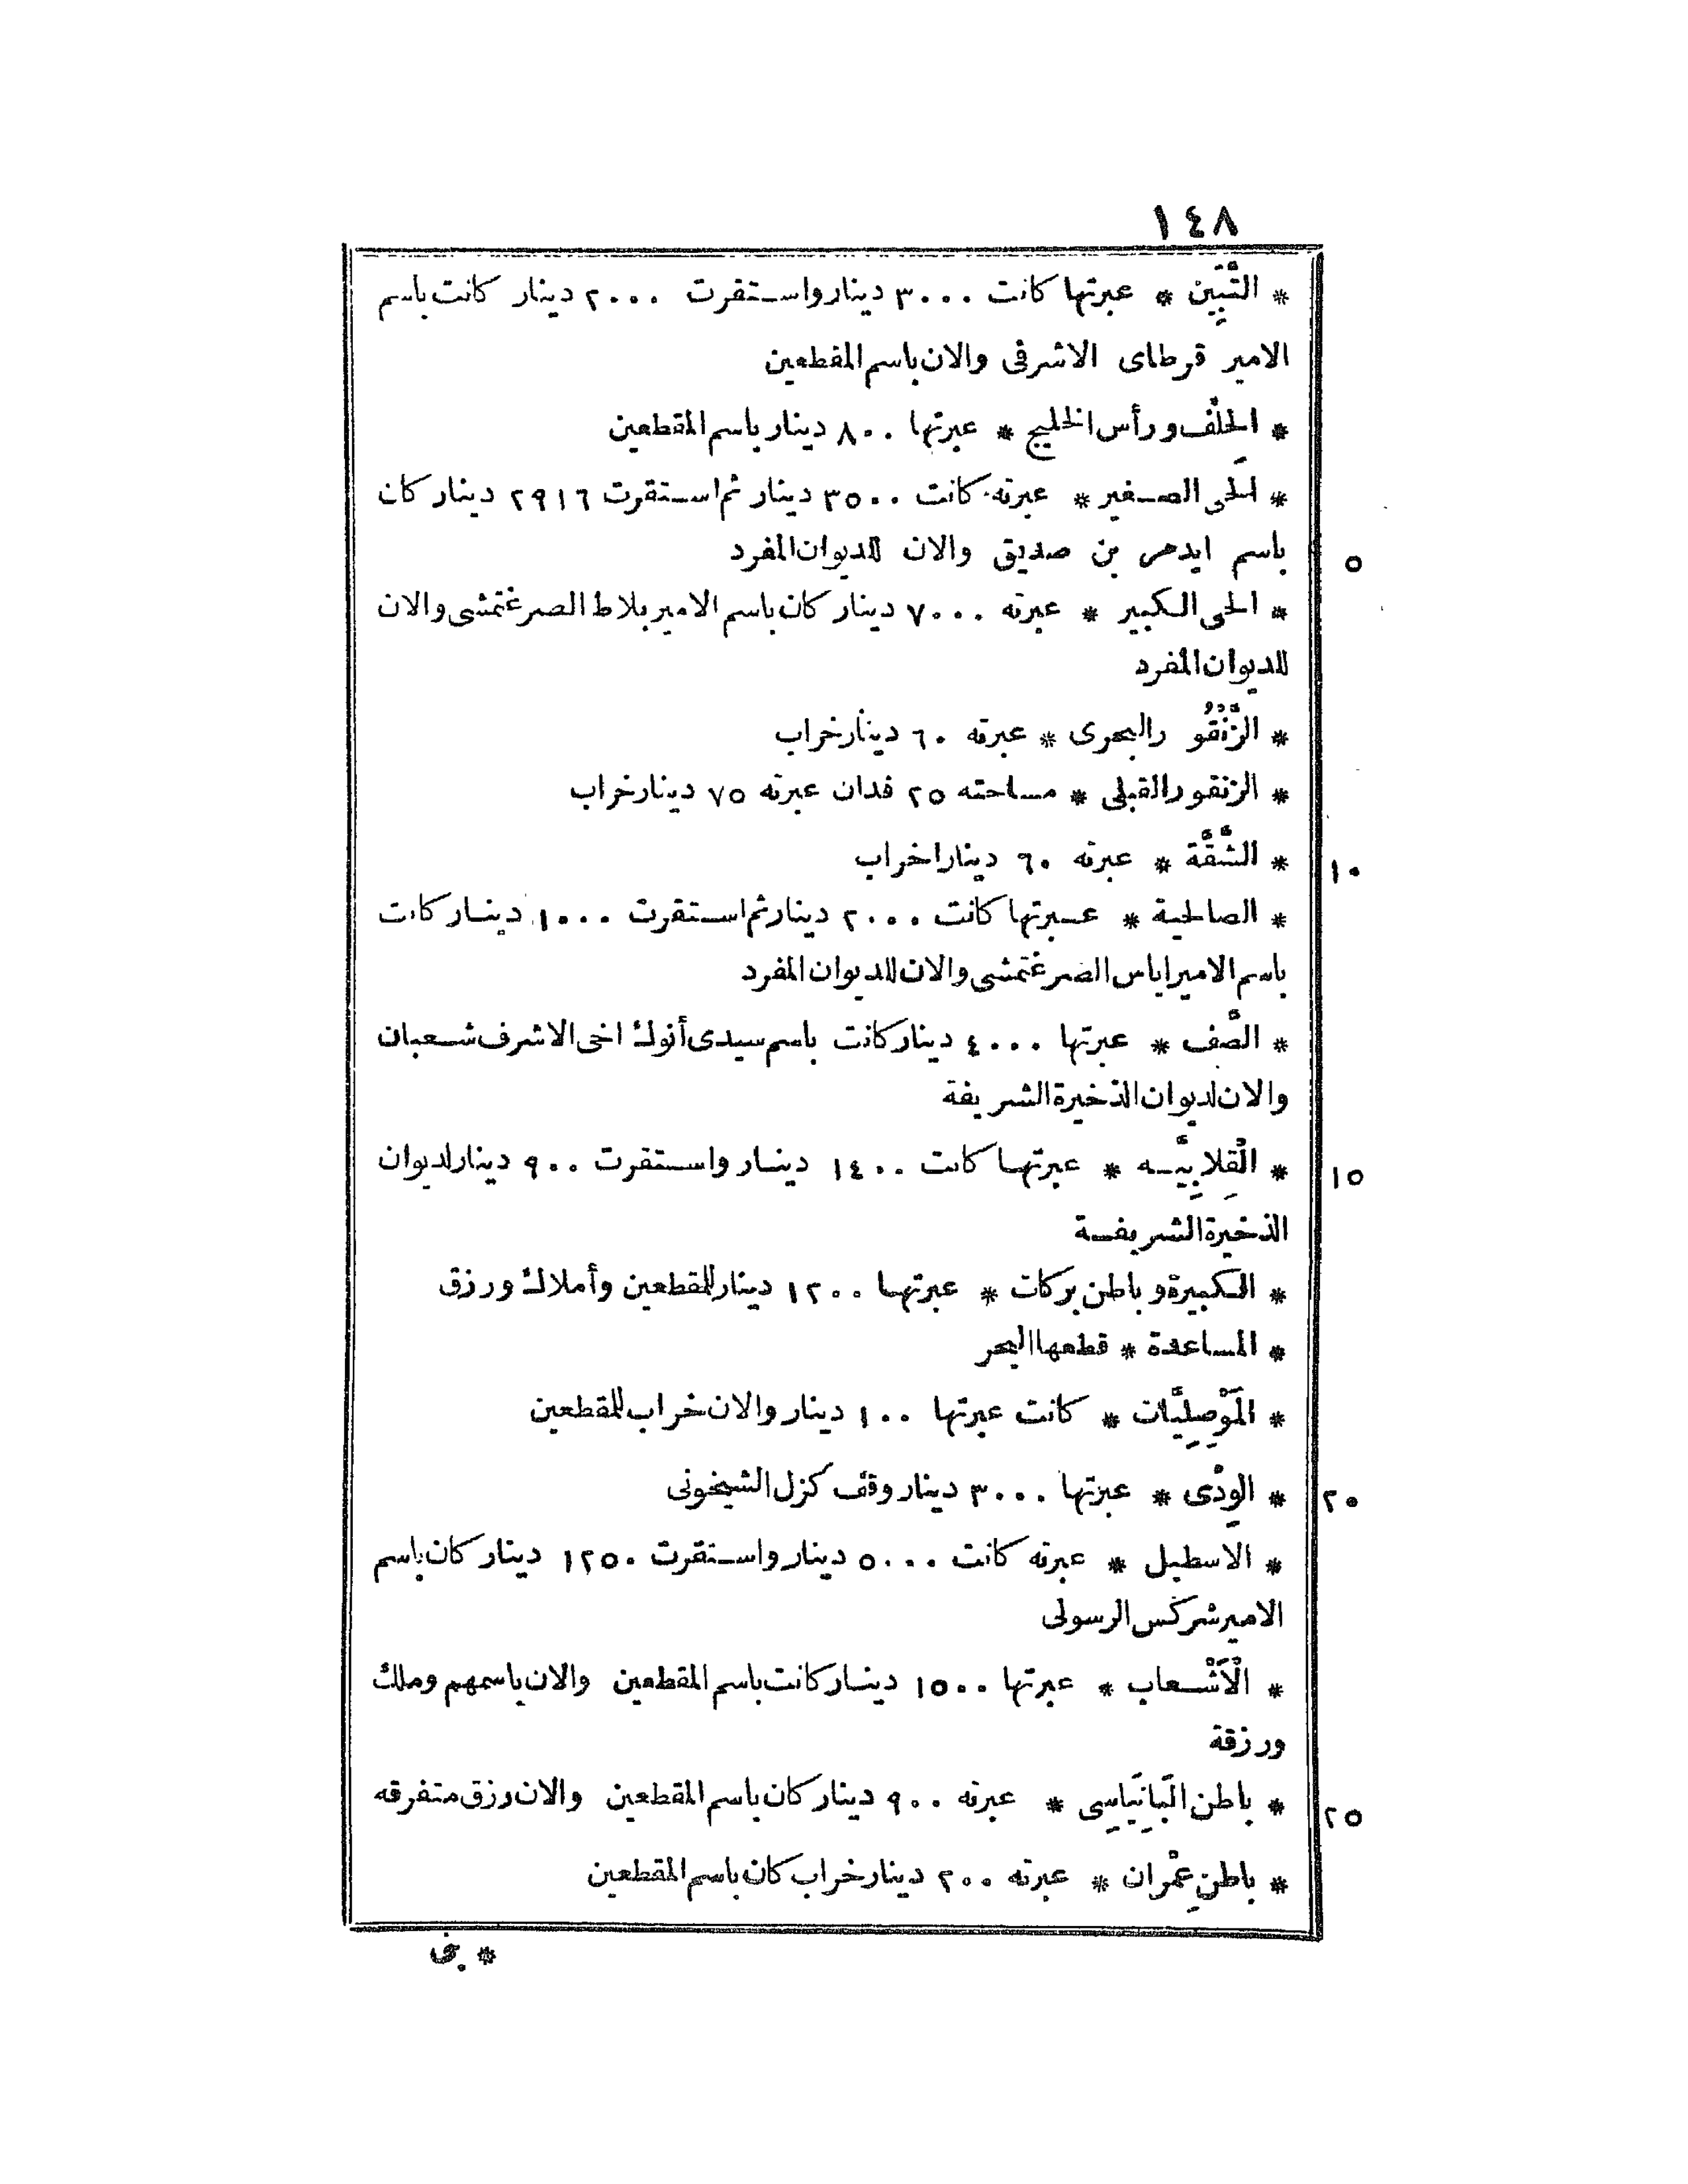 ١٤٨
* التَّبِّين * عبرتها كانت ٣٠٠٠ دينار واستقرت ٢٠٠٠ دينار كانت باسم
الامير قرطاى الاشرفى والان باسم المقطعين
* الحِلْف ورأس الخليج * عبرتها ٨٠٠ دينار باسم المقطعين
* الحى الصغير * عبرته كانت ٣٥٠٠ دينار ثم استقرت ٢٩١٦ دينار كان
باسم ايدمر بن صديق والان للديوان المفرد
٥
* الحى الكبير * عبرته ٧٠٠٠ دينار كان باسم الامير بلاط الصرغتمشى والان
للديوان المفرد
* الزُّنْقُو رالبحرى * عبرته ٦٠ دينار خراب
* الزنقور القبلى * مساحته ٢٥ فدان عبرته ٧٥ دينار خراب
* الشَّقَّة * عبرته ٦٠ دينارا خراب
١٠
* الصالحية * عبرتها كانت ٢٠٠٠ دينار ثم استقرت ١٠٠٠ دينار كانت
باسم الامير اياس الصرغتمشى والان للديوان المفرد
* الصَّف * عبرتها ٤٠٠٠ دينار كانت باسم سيدى أنوك اخى الاشرف شعبان
والان لديوان الذخيرة الشريفة
* الْقِلابِيَّه * عبرتها كانت ١٤٠٠ دينار واستقرت ٩٠٠ دينار لديوان
١٥
الذخيرة الشريفة
* الكبيرة وباطن بركات * عبرتها ١٢٠٠ دينار للمقطعين وأملاك ورزق
* المساعدة * قطعها البحر
* المَوْصِلِيَّات * كانت عبرتها ١٠٠ دينار والان خراب للمقطعين
* الوِدْى * عبرتها ٣٠٠٠ دينار وقف كزل الشيخونى
٢٠
* الاسطبل * عبرته كانت ٥٠٠٠ دينار واستقرت ١٢٥٠ دينار كان باسم
الامير شركس الرسولى
* الْأَشْعاب * عبرتها ١٥٠٠ دينار كانت باسم المقطعين والان باسمهم وملك
ورزقة
* باطن البَانِيَاسِى * عبرته ٩٠٠ دينار كان باسم المقطعين والان رزق متفرقه
٢٥
* باطن عِمْران * عبرته ٢٠٠ دينار خراب كان باسم المقطعين